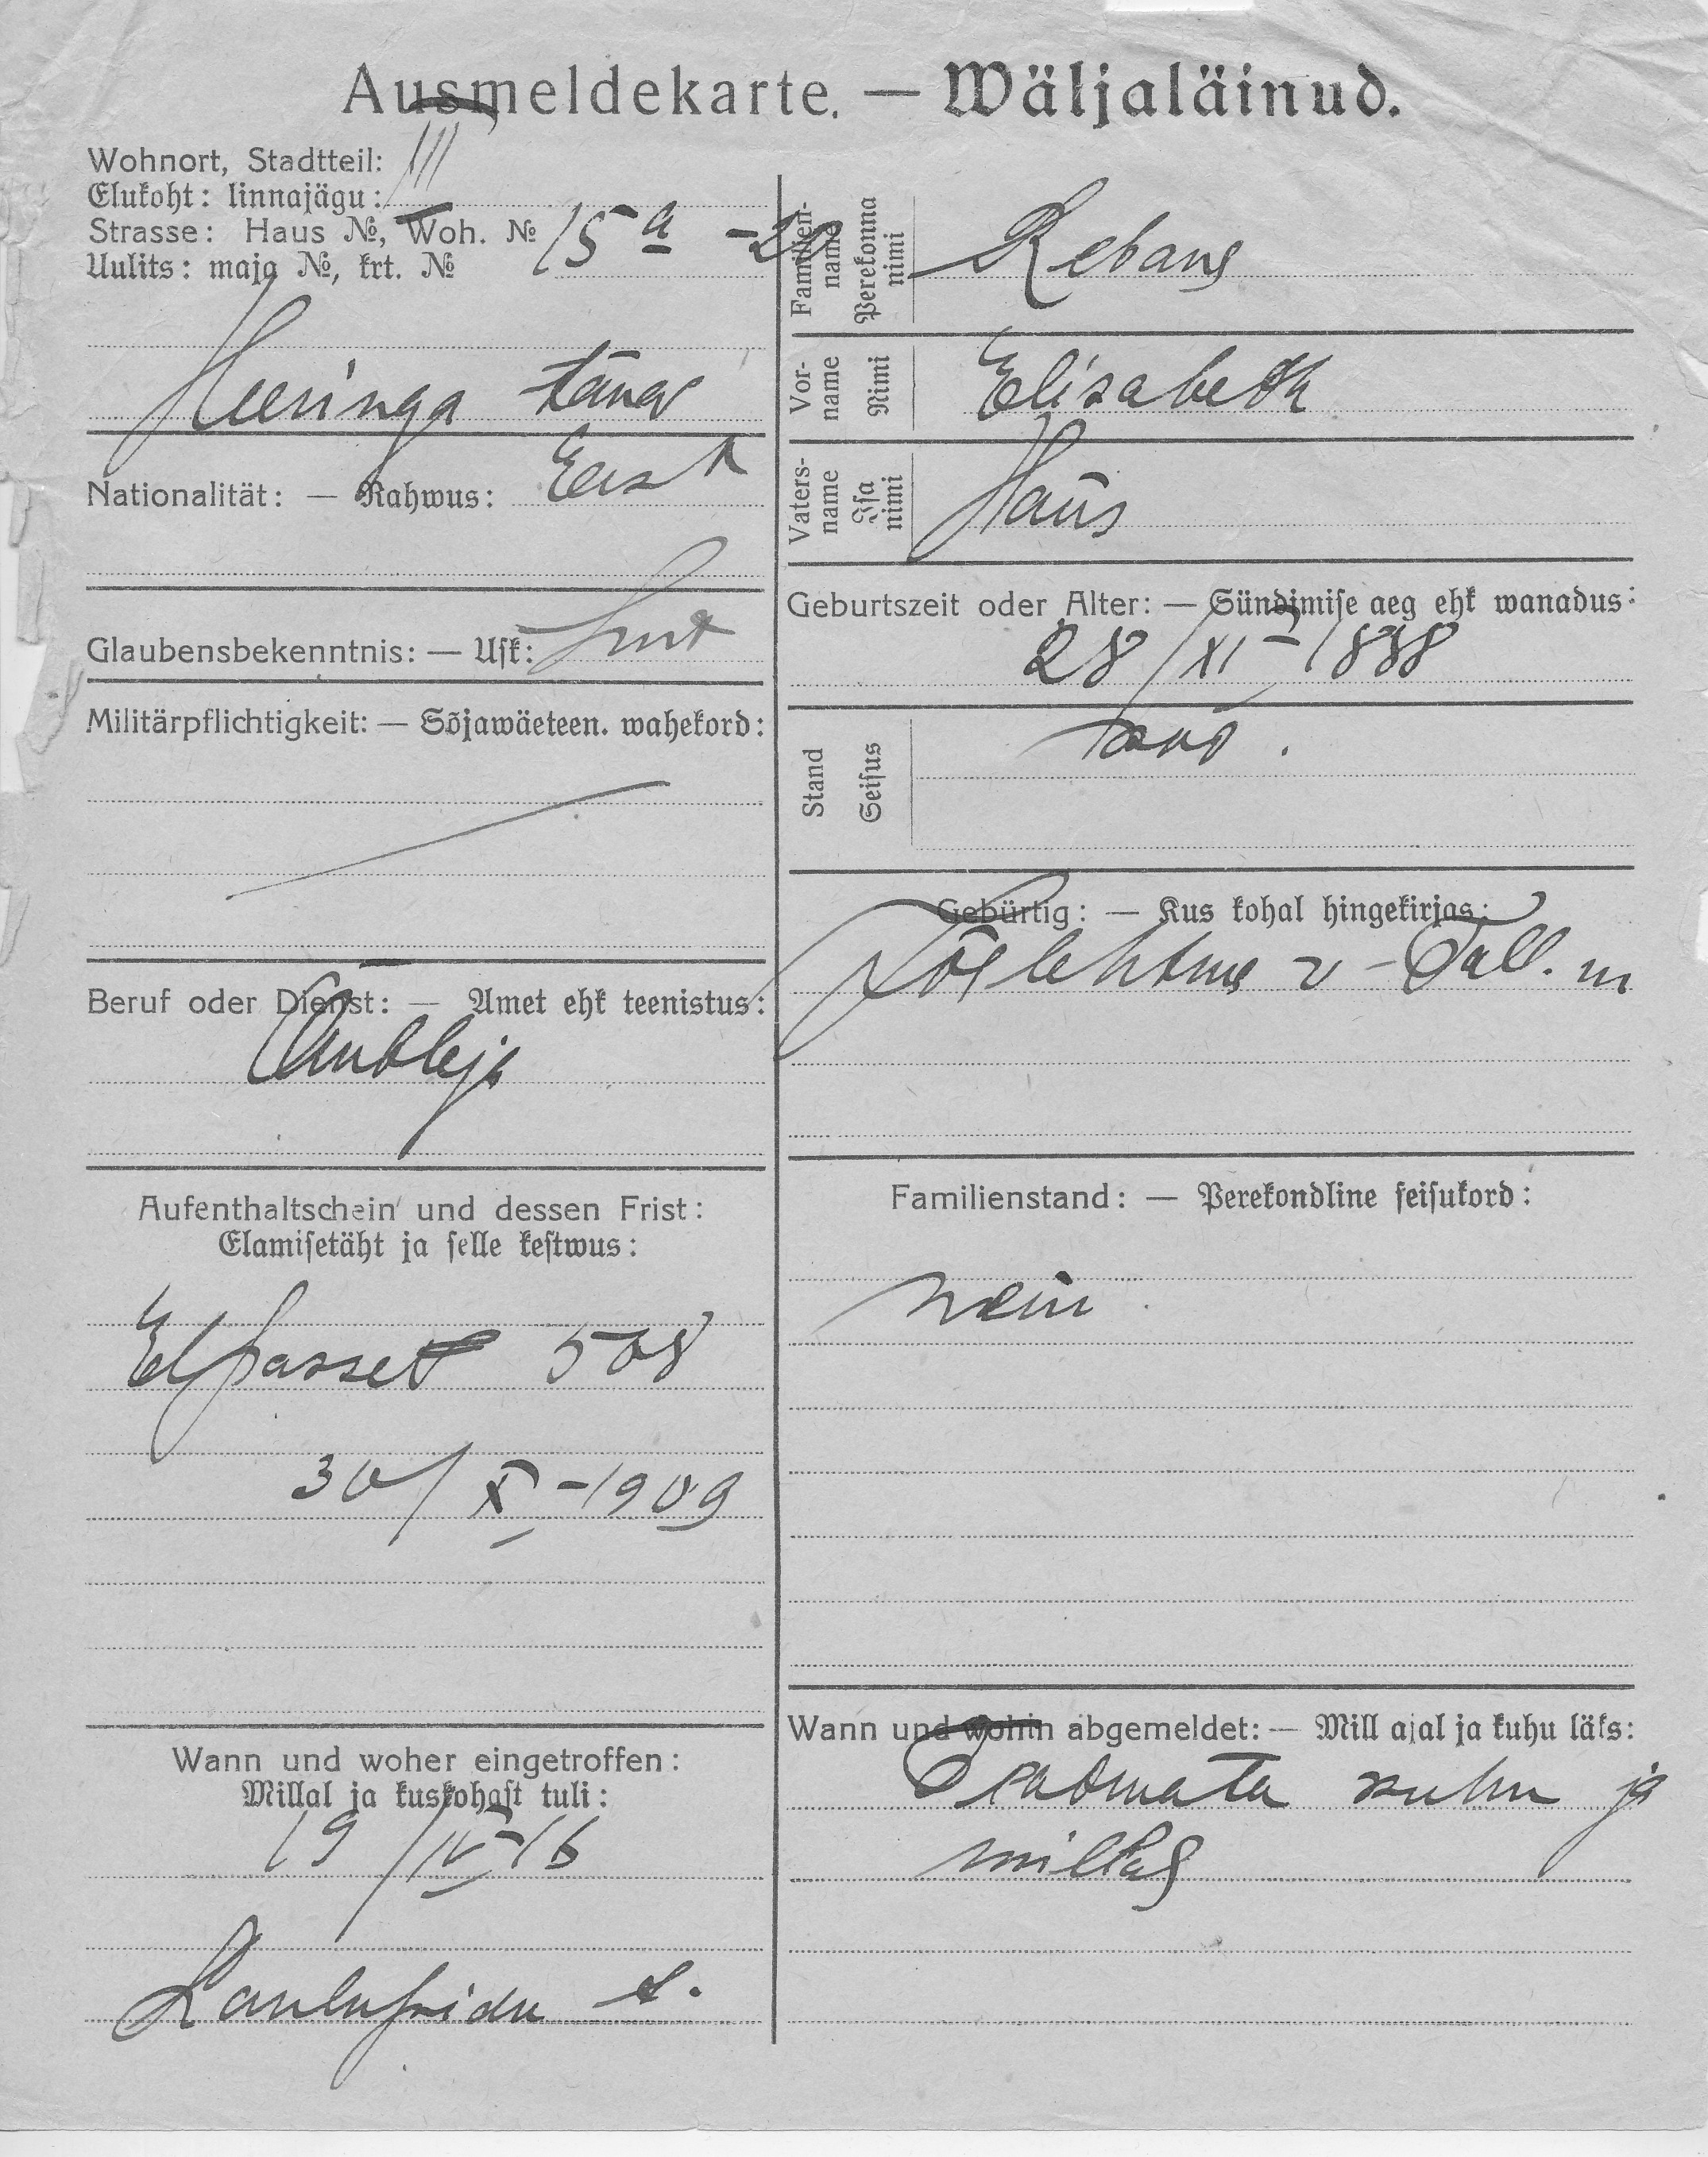 Ausmeldekarte. — Wäljaläinud.
Wohnort, Stadtteil: III
Elukoht: linnajägu:
Strasse: Haus №, Woh. № 15 a - 20
Uulits: maja №, krt. №
Heeringa tänav
Nationalität: — Rahwus: Eest
Glaubensbekenntnis: — Usk: Lut
Militärpflichtigkeit: — Sõjawäeteen. wahekord:
Beruf oder Dienst: — Amet ehk teenistus:
Ömbleja
Aufenthaltschein und dessen Frist:
Elamisetäht ja selle kestwus:
Elpasset 508
30/X-1909
Wann und woher eingetroffen:
Millal ja kuskohast tuli:
19/IV-16
Laulupidu t.
Familien-
name
Perekonna
nimi
Rebans
Vor-
name
Nimi
Elisabeth
Vaters-
name
Isa
nimi
Hans
Geburtszeit oder Alter: — Sündimise aeg ehk wanadus:
28/XI-1888
Stand
Seisus
Gebürtig: — Kus kohal hingekirjas:
Jõelehtme v - Tall. m
Familienstand: — Perekondline seisukord:
Wann und wohin abgemeldet: — Mill ajal ja kuhu läks:
Teadmata kuhu ja
millal